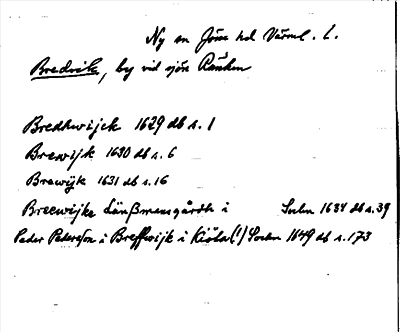 Ny sn Jösse hd Värml. l.
Bredvik, by vid sjön Ränken
Bredhwijck 1629 db s. 1
Brewijk 1630 db s. 6
Brewijk 1631 db s. 16
Breewijke Länssmansgårdh i Sochn 1634 db s. 39
Peder Pedersson i Breffwijk i Kiöla (!) Sochn 1649 db s. 173